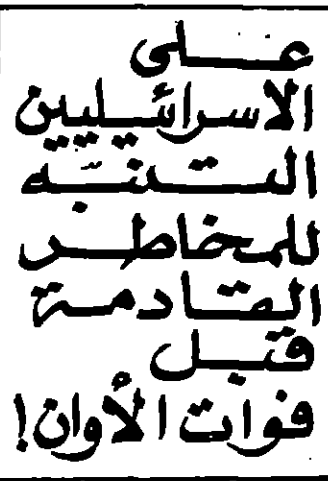 على
الاسرائيليين
التنبّه
للمخاطر
القادمة
قبل
فوات الأوان!